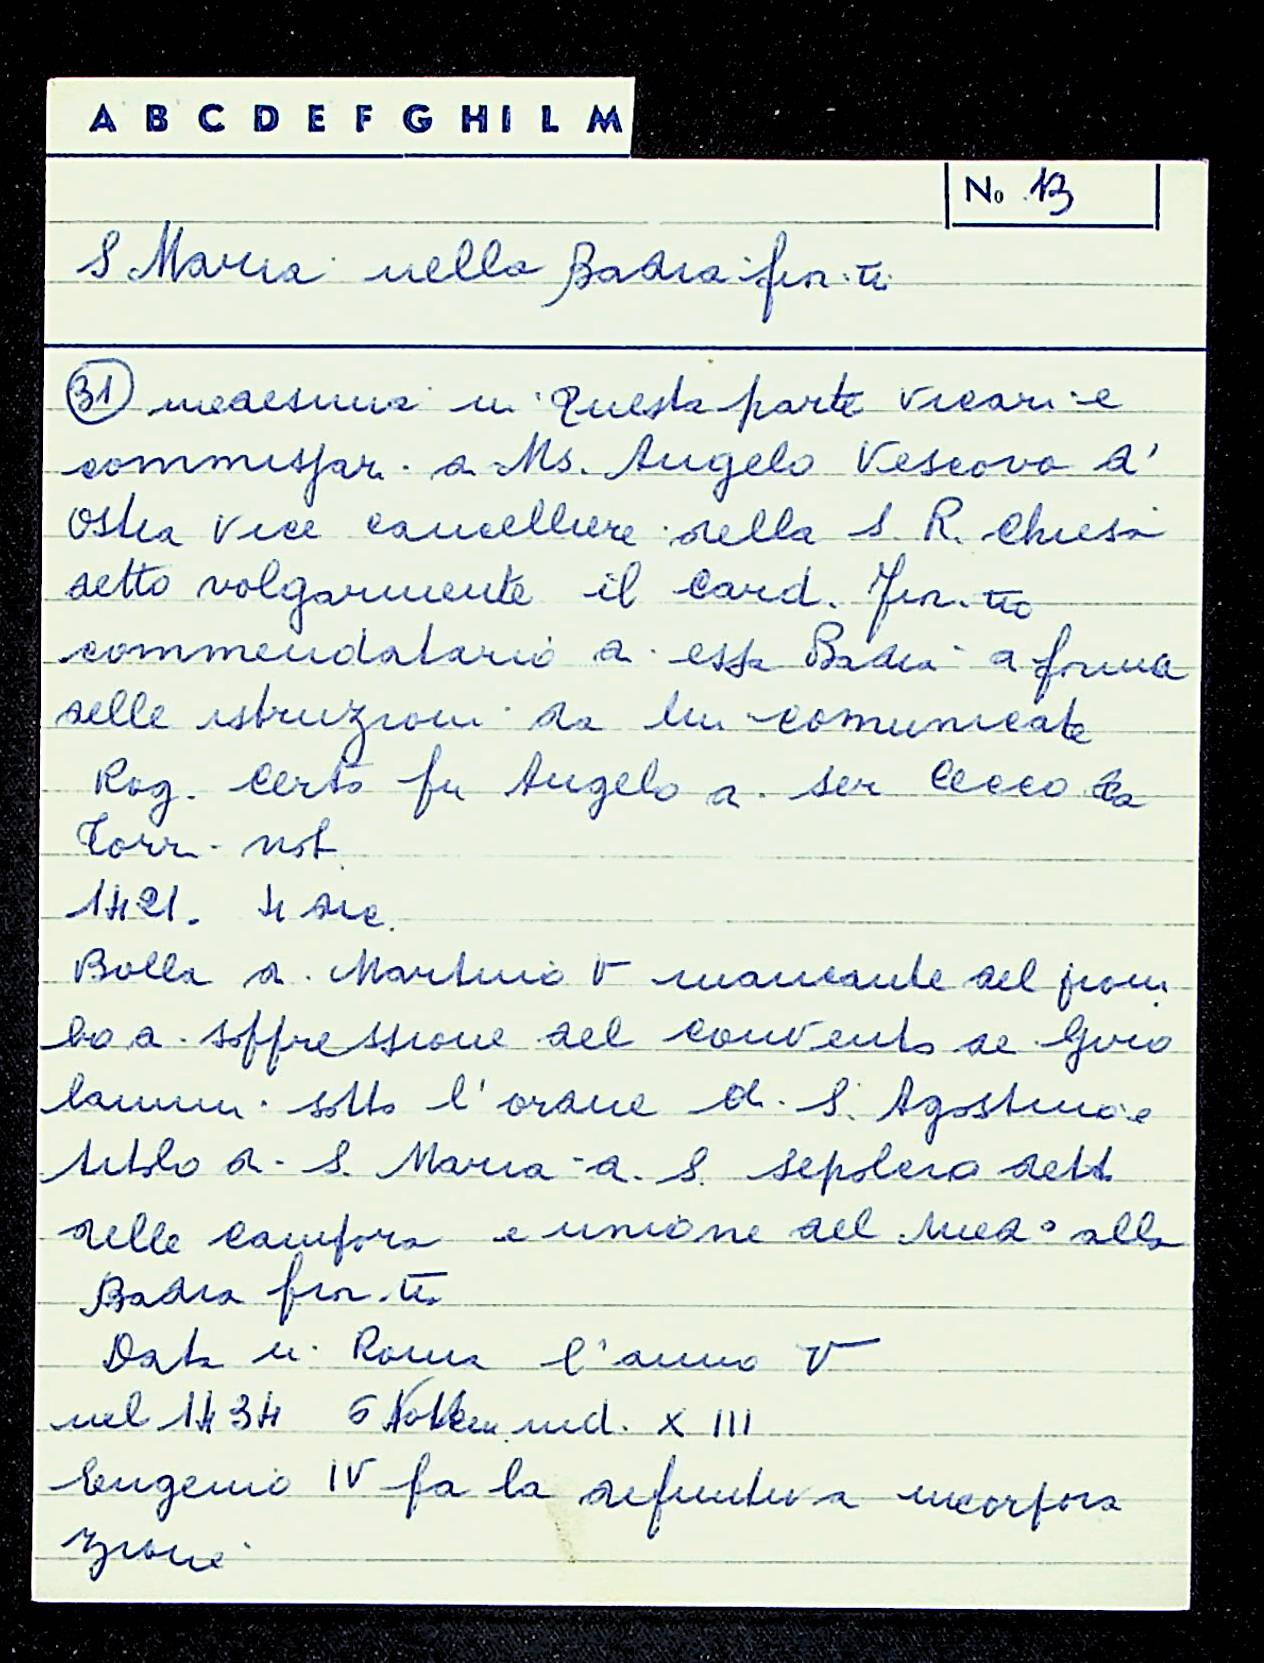 A B C D E F G H I L M
No 13
S. Maria nella Badia fior.na
31 medesima in questa parte vicari e
commissar. di Ms. Angelo Vescovo d'
Ostia vice cancelliere della S. R. Chiesa
detto volgarmente il Card. fior.no
commendatario di essa Badia a forma
delle istruzioni da lui comunicate
Rog. Certo fu Angelo di ser Cecco da
not.
1421. 4 dic.
Bolla di Martino V mancante del piom
bo di soffressione del convento de Giro
lamini sotto l'ordine di S. Agostino e
titolo di S. Maria di S. Sepolcro dett
delle campora e unione del med° alla
Badia fior.na
Data in Roma l'anno V
nel 1434 6 ind. XIII
Eugenio IV fa la definitiva incorpora
zione